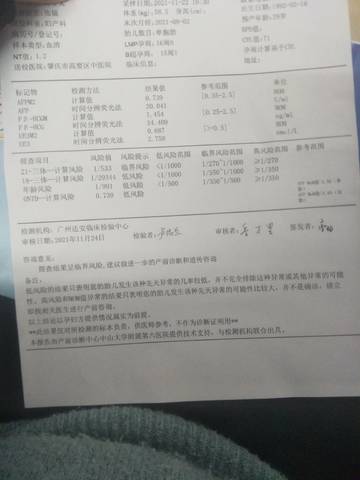 采样日期:2021-11-22 10:30
科室:妇产科 体重(kg):58.5 身高(cm):
病历号/登记号: 末次月经:2021-08-02
样本类型:血清 胎儿数目:单胞胎
NT值:1.2 LMP孕周:16周
送检医院:肇庆市高要区中医院 临床信息:
出生日期:1992-02-16
按产年龄:29岁
CRL值:71
孕周计算基于CRL
标记物 检测方法 结果值 参考范围 单位
AFPM2 计算值 0.739 [0.35-2.5] MOM
AFP 时间分辨荧光法 20.041 U/ml
计算值 1.454 [0.25-2.5] MOM
时间分辨荧光法 14.409 ng/ml
UE3M2 计算值 0.687 [>=0.5] MOM
UE3 时间分辨荧光法 2.758 nmol/L
筛查项目 风险值 风险提示 低风险范围 临界风险范围 高风险范围 参考范围
21-三体--计算风险 1/533 临界风险 <1/1000 1/270~1/1000 ≥1/270
18-三体--计算风险 1/29344 低风险 <1/1000 1/350~1/1000 ≥1/350
年龄风险 1/991 低风险
ONTD-计算风险 0.739 低风险
检测机构:广州达安临床检验中心
审核日期:2021年11月24日 检验者: 审核者: 签发者:
咨询意见:
筛查结果呈临界风险,建议做进一步的产前诊断和遗传咨询
备注:
低风险的结果只表明您的胎儿发生该种先天异常的几率较低,并不完全排除这种异常或其他异常的可能
性。高风险和MOM值异常的结果只表明您的胎儿发生该种先天异常的可能性比较大,并不是确诊,请立
即找相关医生进行产前咨询。
以上结论以孕妇方提供情况属实为前提。
**此结果仅对所检测的标本负责,供医师参考,不作为诊断证明用**
本报告由产前诊断中心中山大学附属第六医院提供技术支持,与检测机构联合出具。